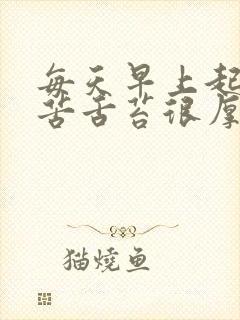 每天早上起
苦舌苔很厚
猫燒鱼